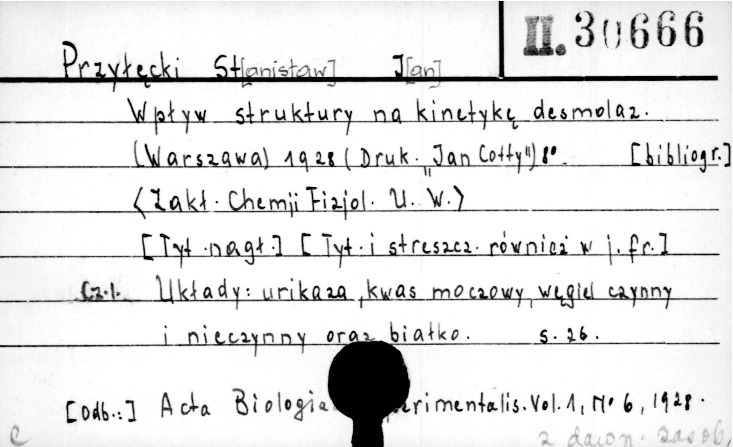 II. 30666
Przyłęcki St[anisław] J[an]
Wpływ struktury na kinetykę desmolaz.
(Warszawa) 1928 (Druk. "Jan Cotty") 8°. [bibliogr.]
<Zakł. Chemji Fizjol. U. W.>
[Tyt. nagł.] [Tyt. i streszcz. również w j. fr.]
Cz.1. Układy: urikaza, kwas moczowy, węgiel czynny
i nieczynny oraz białko. s. 26.
[Odb.:] Acta Biologia perimentalis. Vol. 1, N° 6, 1928.
e z dawn. zasob.